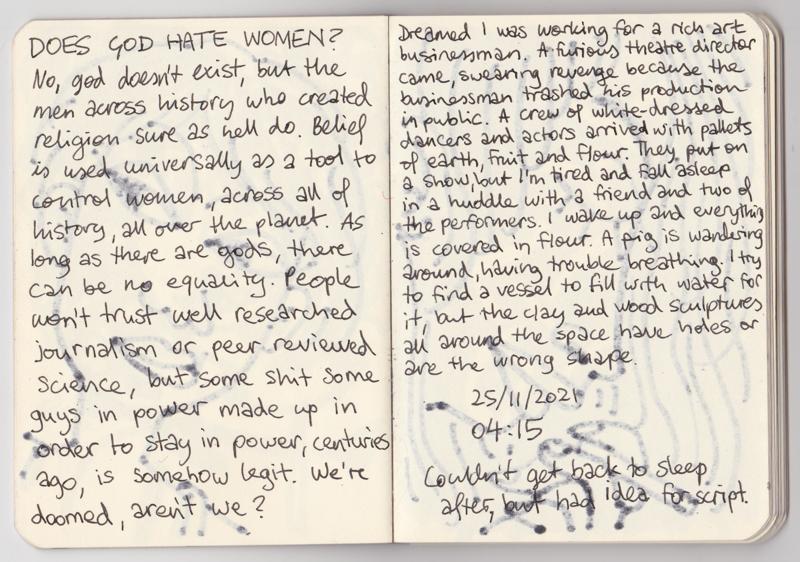 DOES GOD HATE WOMEN?
No, god doesn't exist, but the
men across history who created
religion sure as hell do. Belief
is used universally as a tool to
control women, across all of
history, all over the planet. As
long as there are gods, there
can be no equality. People
won't trust well researched
journalism or peer reviewed
science, but some shit some
guys in power made up in
order to stay in power, centuries
ago, is somehow legit. We're
doomed, aren't we?
Dreamed I was working for a rich art
businessman. A furious theatre director
came, swearing revenge because the
businessman trashed his production
in public. A crew of white-dressed
dancers and actors arrived with pallets
of earth, fruit and flour. They put on
a show, but I'm tired and fall asleep
in a huddle with a friend and two of
the performers. I wake up and everything
is covered in flour. A pig is wandering
around, having trouble breathing. I try
to find a vessel to fill with water for
it, but the clay and wood sculptures
all around the space have holes or
are the wrong shape.
25/11/2021
04:15
Couldn't get back to sleep
after, but had idea for script.